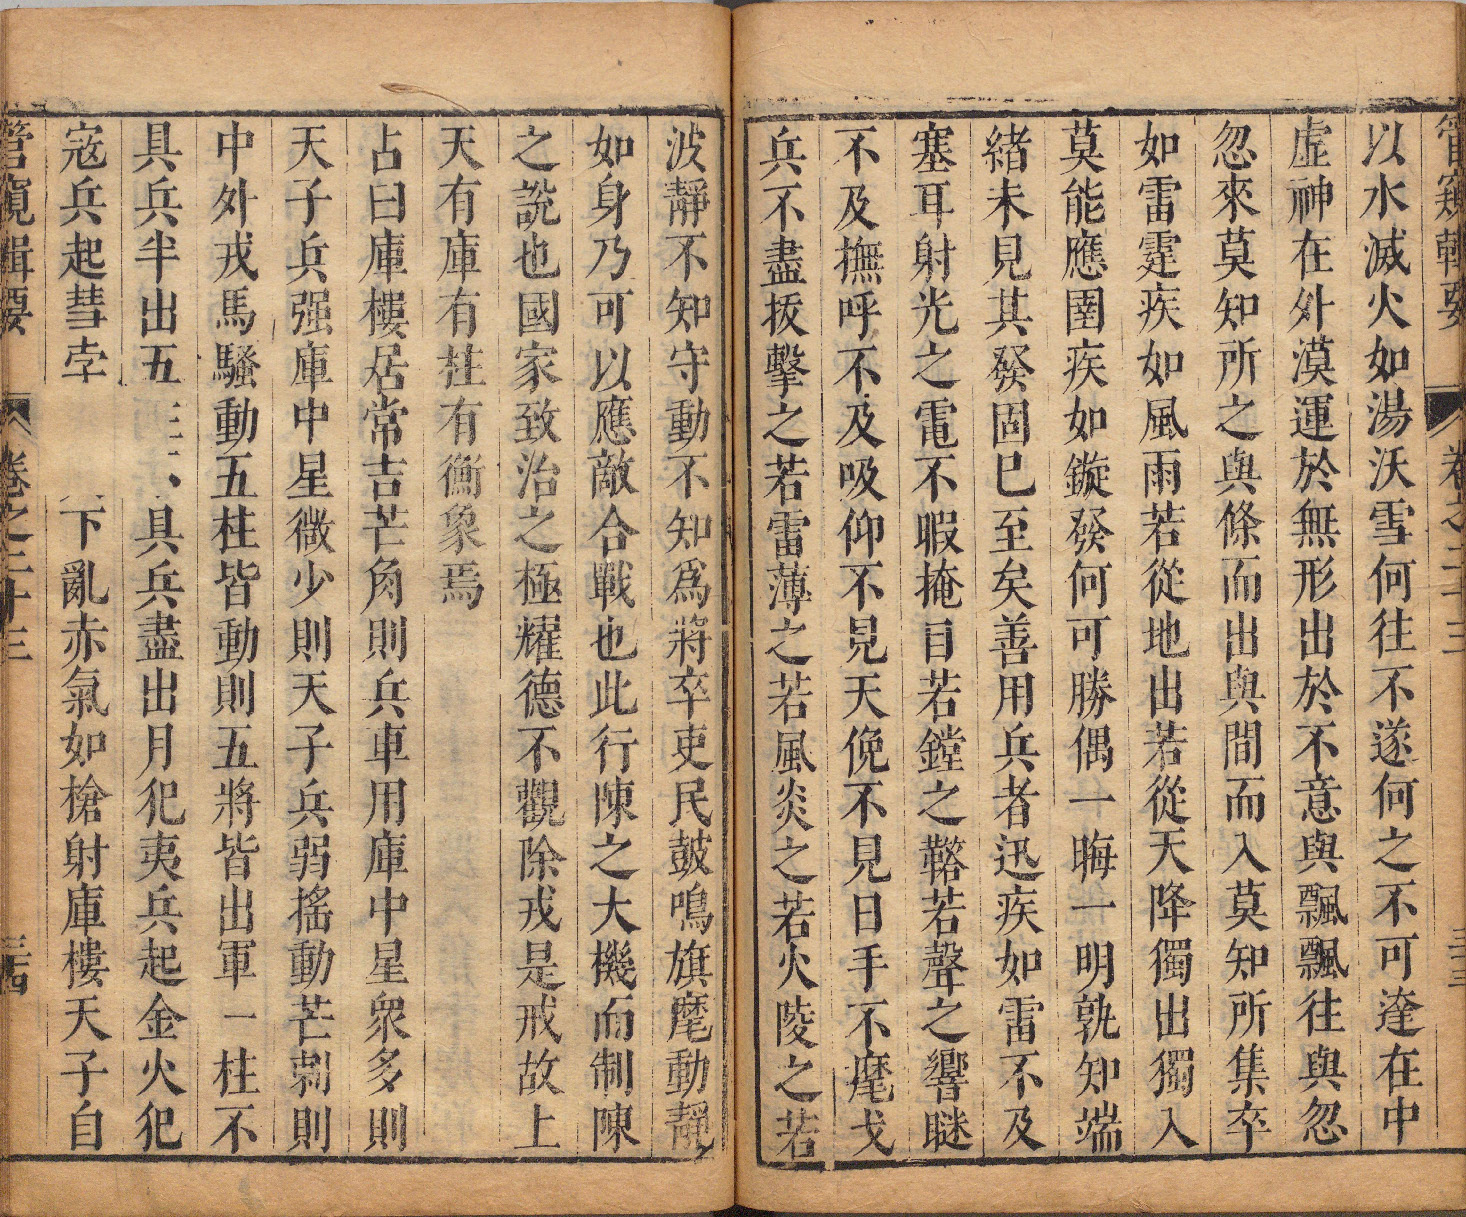 管窺輯要 卷之二十三 三十三
以水滅火如湯沃雪何往不遂何之不可逹在中
虛神在外漠運於無形出於不意與飄飄往與忽
忽來莫知所之與條而出與間而入莫知所集卒
如雷霆疾如風雨若從地出若從天降獨出獨入
莫能應圉疾如鏇發何可勝偶一晦一明孰知端
緒未見其發固巳至矣善用兵者迅疾如雷不及
塞耳射光之電不暇掩目若鏜之鞳若聲之響瞇
不及撫呼不及吸仰不見天俛不見日手不麾戈
兵不盡拔擊之若雷薄之若風炎之若火陵之若
波靜不知守動不知為將卒吏民鼓鳴旗麾動靜
如身乃可以應敵合戰也此行陳之大機而制陳
之說也國家致治之極耀德不觀除戎是戒故上
天有庫有柱有衡象焉
占曰庫樓居常吉芒角則兵車用庫中星衆多則
天子兵强庫中星微少則天子兵弱搖動芒刺則
中外戎馬騷動五柱皆動則五將皆出軍一柱不
具兵半出五 具兵盡出月犯夷兵起金火犯
寇兵起彗孛 下亂赤氣如槍射庫樓天子自
管窺輯要 卷之二十三 三十四